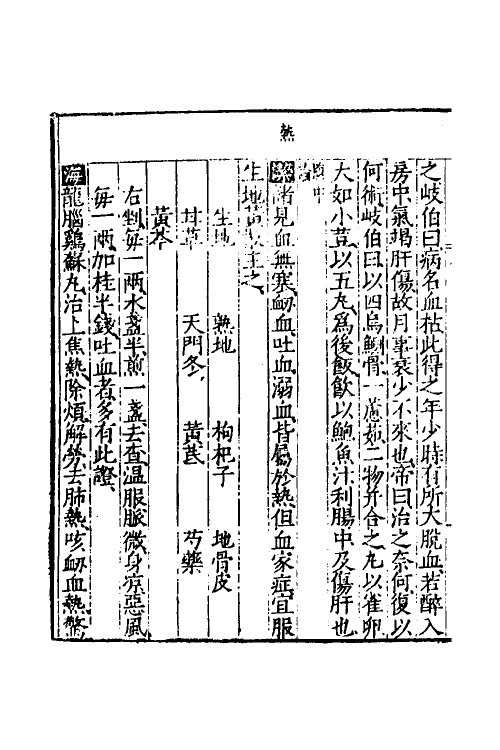 熱
之岐伯曰病名血枯此得之年少時有所大脫血若醉入
房中氣竭肝傷故月事衰少不來也帝曰治之奈何復以
何術岐伯曰以四烏鰂骨一藘茹二物并合之丸以雀卵
大如小荳以五丸為後飯飲以鮑魚汁利腸中及傷肝也
諸見血無寒衂血吐血溺血皆屬於熱但血家症宜服
生地黃散主之
生地 熟地 枸杞子 地骨皮
甘草 天門冬 黃芪 芍藥
黃芩
右剉每一兩水盞半煎一盞去查温服脈微身凉惡風
每一兩加桂半錢吐血者多有此證
海龍腦鷄蘇丸治上焦熱除煩解勞去肺熱咳衂血熱驚